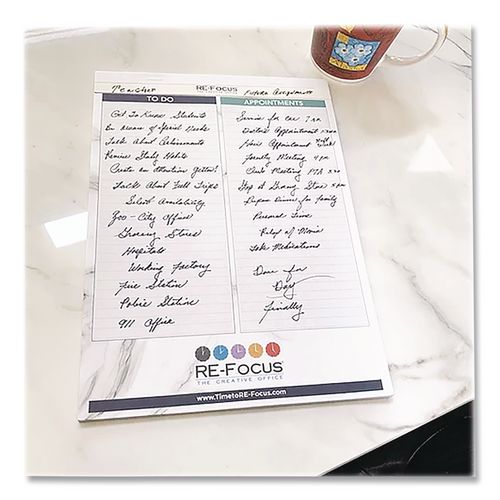 Teacher
RE-FOCUS
THE CREATIVE OFFICE
Future Assignments
TO DO
Get To Know Students
Be aware of Special Needs
Talk About Achievements
Review Study Habits
Create an Attendance
Talk About Field Trips
Select Availability
Zoo - City Offices
Grocery Stores
Hospitals
Working Factory
Fire Station
Police Station
911 Office
APPOINTMENTS
Service for Car 7 am
Doctors Appointment
Hair Appointment
Faculty Meeting 4 pm
Club Meeting
Stop at Grocery Store
Prepare Dinner for family
Personal Time
Relax w/ Movie
Take Medications
Done for
Day
Finally
RE-FOCUS
THE CREATIVE OFFICE
www.TimetoRE-Focus.com